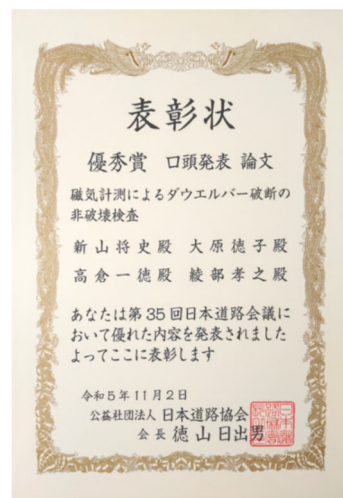 表彰状
優秀賞 口頭発表 論文
磁気計測によるダウエルバー破断の
非破壊検査
新山将史殿 大原徳子殿
高倉一徳殿 綾部孝之殿
あなたは第35回日本道路会議に
おいて優れた内容を発表されました
よってここに表彰します
令和5年11月2日
公益社団法人 日本道路協会
会長 徳山日出男